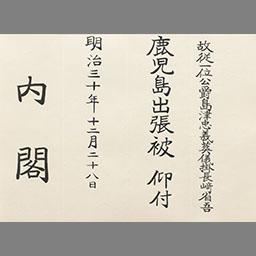 故従一位公爵島津忠義葬儀掛長崎省吾
鹿児島出張被 仰付
明治三十年十二月二十八日
内閣